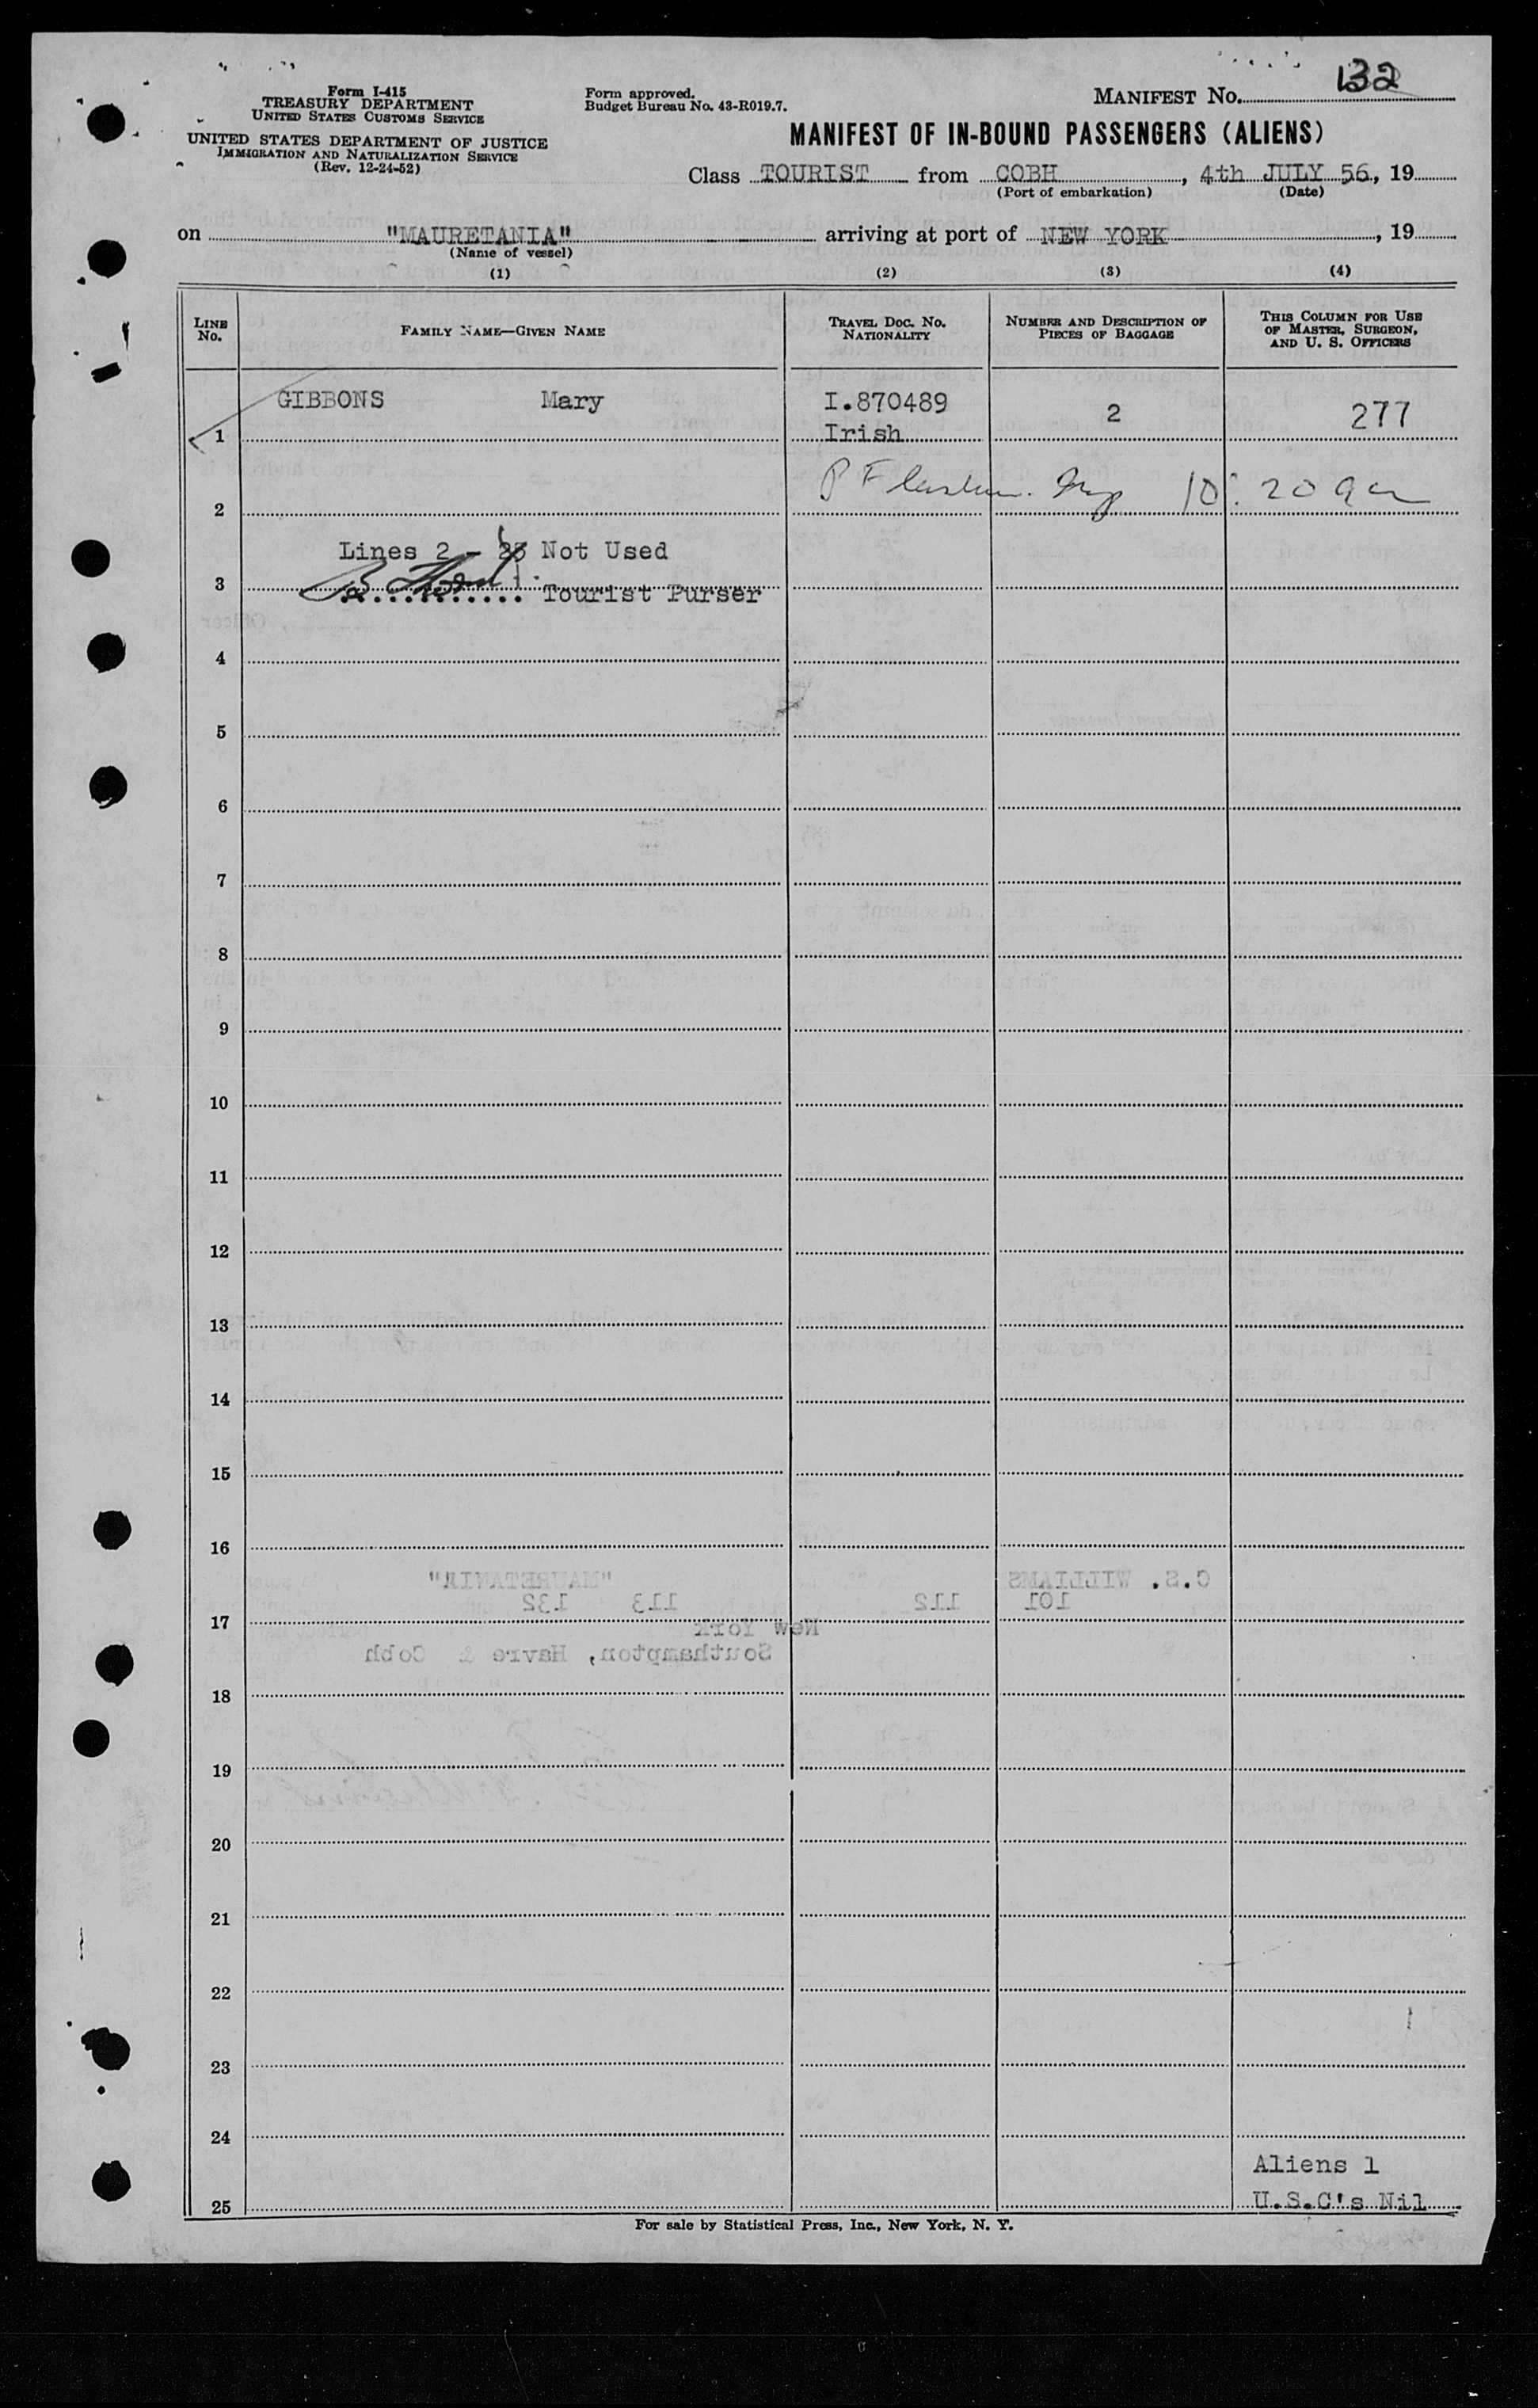 132
Form I-415
TREASURY DEPARTMENT
UNITED STATES CUSTOMS SERVICE
UNITED STATES DEPARTMENT OF JUSTICE
IMMIGRATION AND NATURALIZATION SERVICE
(Rev. 12-24-52)
Form approved.
Budget Bureau No. 43-R019.7.
MANIFEST No.
MANIFEST OF IN-BOUND PASSENGERS (ALIENS)
Class TOURIST from COBH, 4th JULY 56, 19
(Port of embarkation) (Date)
on "MAURETANIA" arriving at port of NEW YORK, 19
(Name of vessel)
(1) (2) (3) (4)
LINE No.
FAMILY NAME—GIVEN NAME
TRAVEL DOC. No. NATIONALITY
NUMBER AND DESCRIPTION OF PIECES OF BAGGAGE
THIS COLUMN FOR USE OF MASTER, SURGEON, AND U. S. OFFICERS
GIBBONS Mary I.870489 2 277
1 Irish
2 10:20 am
Lines 2 - 25 Not Used
3 Tourist Purser
4
5
6
7
8
9
10
11
12
13
14
15
16
"MAURETANIA" C.S. WILLIAMS
132 113 112 101
17 New York
Southampton, Havre & Cobh
18
19
20
21
22
23
24
Aliens 1
25 U.S.C's Nil
For sale by Statistical Press, Inc., New York, N. Y.